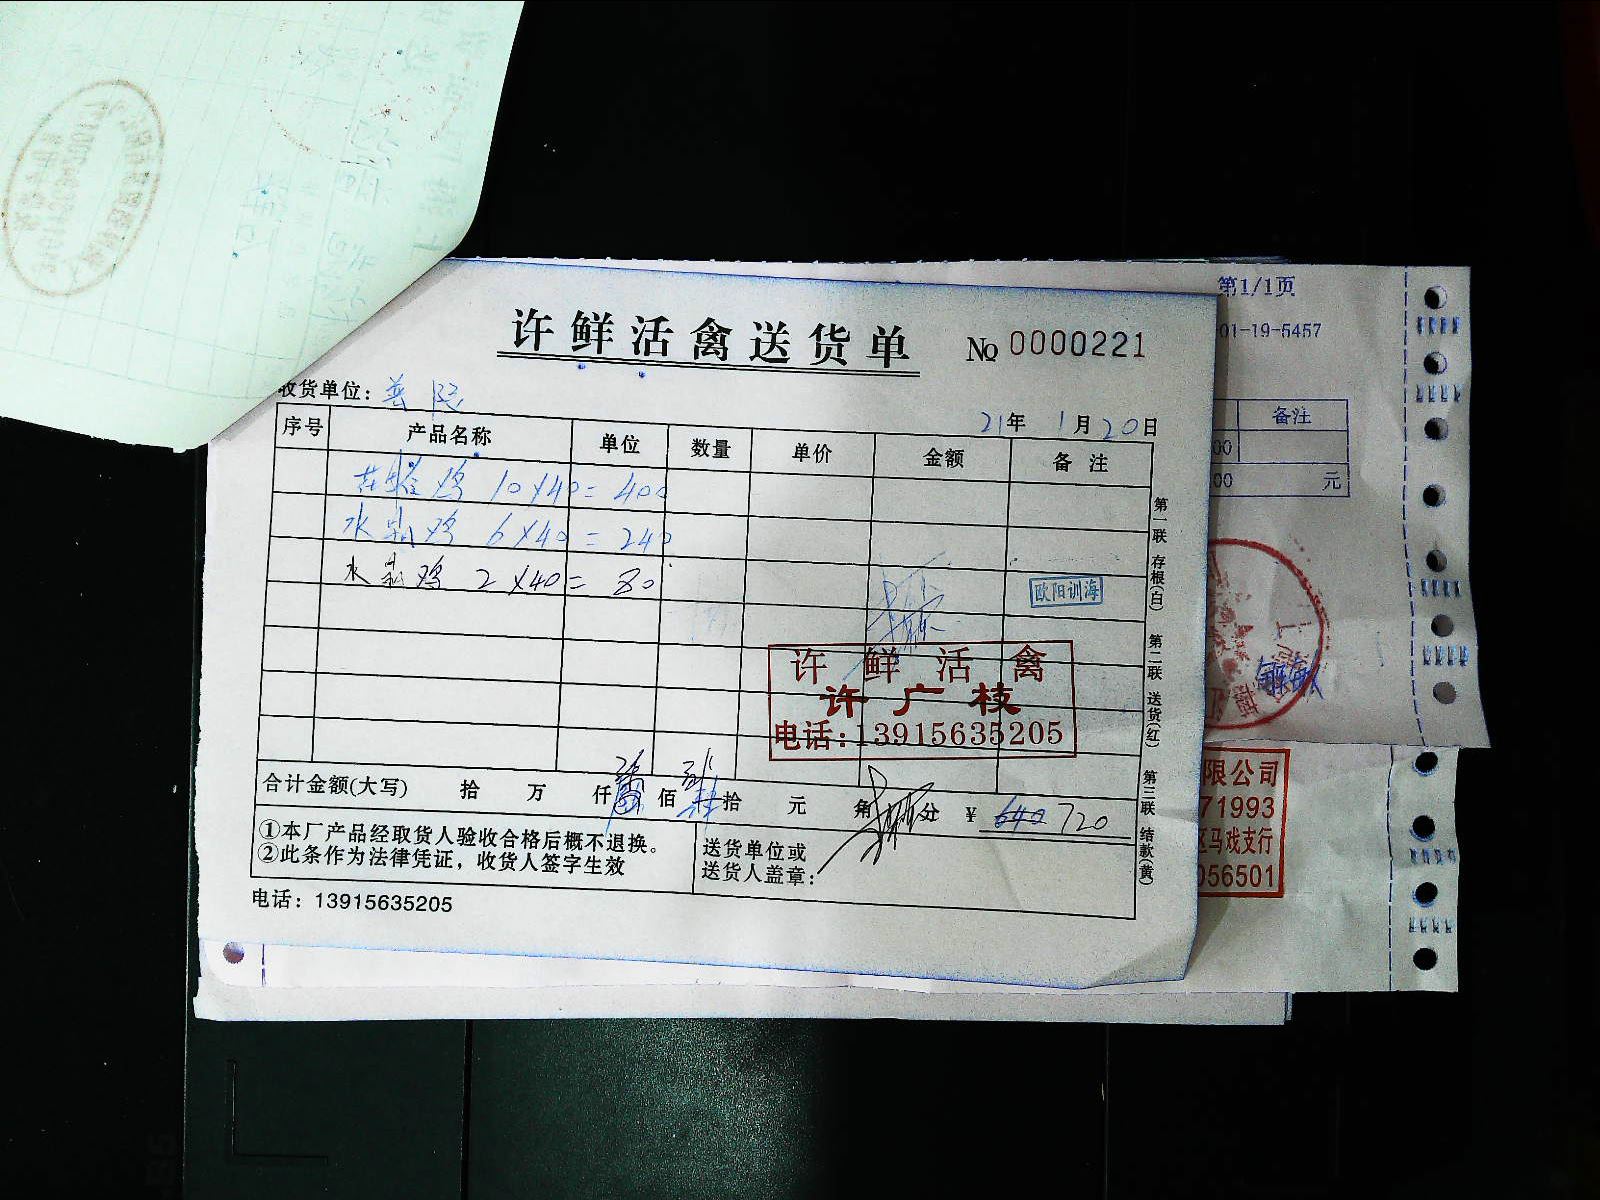 许鲜活禽送货单 № 0000221
收货单位：
21年 1月20日
序号 产品名称 单位 数量 单价 金额 备注
鸡 10×40=400
水 鸡 6×40=240
水 鸡 2×40=80
欧阳训海
许鲜活禽
许广枝
电话：13915635205
合计金额(大写) 拾 万 仟 佰 拾 元 角 分 ¥ 640 720
①本厂产品经取货人验收合格后概不退换。
②此条作为法律凭证，收货人签字生效
送货单位或
送货人盖章：
电话：13915635205
第一联 存根(白) 第二联 送货(红) 第三联 结款(黄)
第1/1页
01-19-5457
备注
00
00 元
限公司
71993
区马戏支行
056501